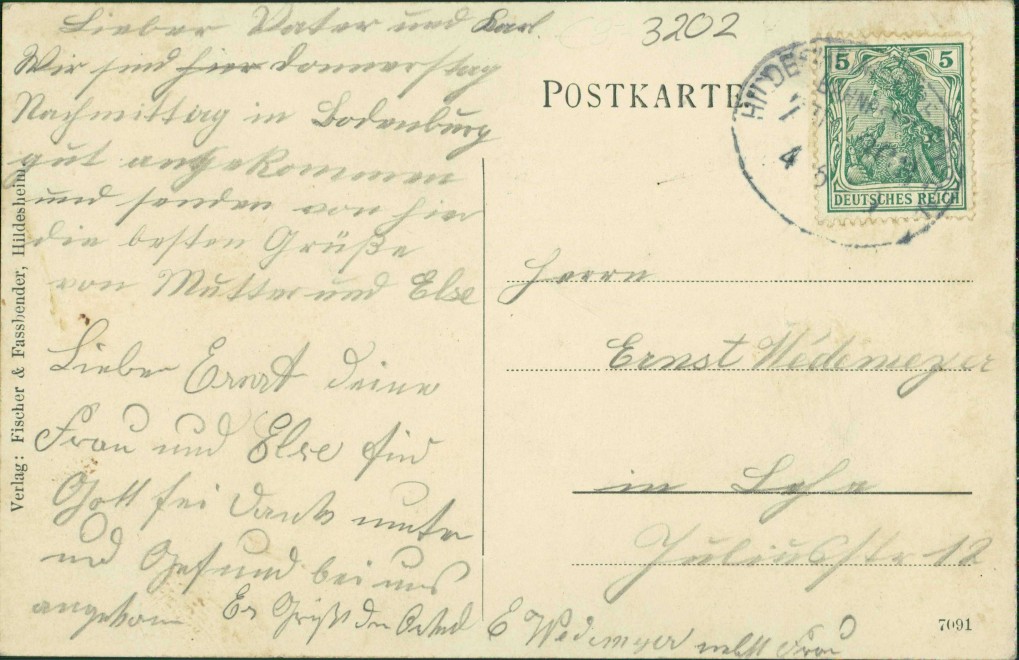 Lieber Vater und Karl.
Wir sind hier Donnerstag
Nachmittag in Bodenburg
gut angekommen
und senden von hier
die besten Grüße
von Mutter und Else
Lieber Ernst deine
Frau und Else sin
Gott sei Dank munter
und Gesund bei uns
angekom
Es Grüßt den
E Wedemeyer nebst Frau
3202
POSTKARTE
5 5
DEUTSCHES REICH
Herrn
Ernst Wedemeyer
in Lehe
Juliusstr 12
7091
Verlag: Fischer & Fassbender, Hildesheim.